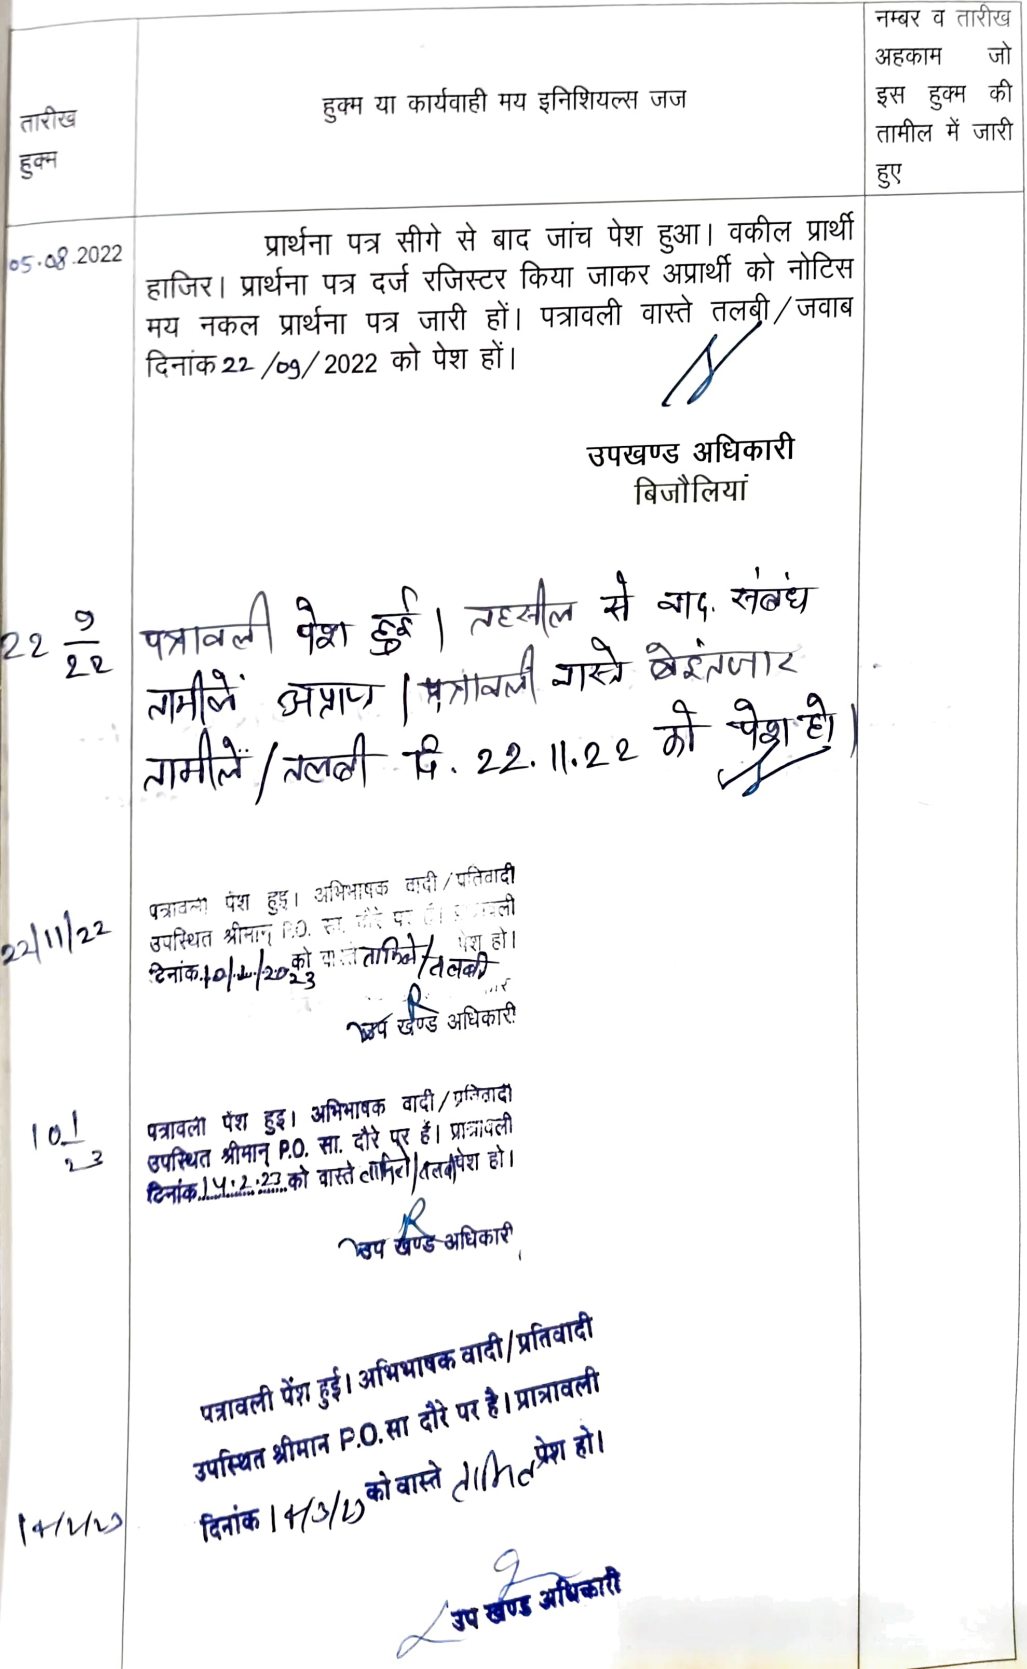 तारीख
हुक्म
हुक्म या कार्यवाही मय इनिशियल्स जज
नम्बर व तारीख
अहकाम जो
इस हुक्म की
तामील में जारी
हुए
05.08.2022
प्रार्थना पत्र सीगे से बाद जांच पेश हुआ। वकील प्रार्थी
हाजिर। प्रार्थना पत्र दर्ज रजिस्टर किया जाकर अप्रार्थी को नोटिस
मय नकल प्रार्थना पत्र जारी हों। पत्रावली वास्ते तलबी/जवाब
दिनांक 22/09/2022 को पेश हों।
उपखण्ड अधिकारी
बिजौलियां
22 9/22
पत्रावली पेश हुई। तहसील से बाद. संबंध
तामीलें अप्राप्त। पत्रावली वास्ते बेइंतजार
तामीलें/तलबी दि. 22.11.22 को पेश हो।
22/11/22
पत्रावली पेश हुइ। अभिभाषक वादी/प्रतिवादी
उपस्थित श्रीमान् P.O. सा. दौरे पर हैं। पत्रावली
दिनांक 10/1/2023 को वास्ते तामिले/तलबी पेश हो।
उप खण्ड अधिकारी
10 1/23
पत्रावली पेश हुइ। अभिभाषक वादी/प्रतिवादी
उपस्थित श्रीमान् P.O. सा. दौरे पर हैं। प्रात्रावली
दिनांक 14.2.23 को वास्ते तामिले/तलबी पेश हो।
उप खण्ड अधिकारी
पत्रावली पेंश हुई। अभिभाषक वादी/प्रतिवादी
उपस्थित श्रीमान P.O. सा दौरे पर है। प्रात्रावली
14/2/23
दिनांक 14/3/23 को वास्ते तामिल प्रेश हो।
उप खण्ड अधिकारी